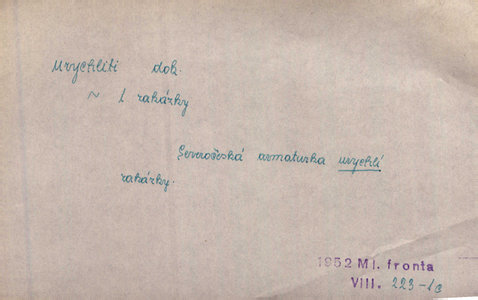 urychliti dok.
~ 1 zakázky
Severočeská armaturka urychlí
zakázky.
1952 Ml. fronta
VIII. 223-1c